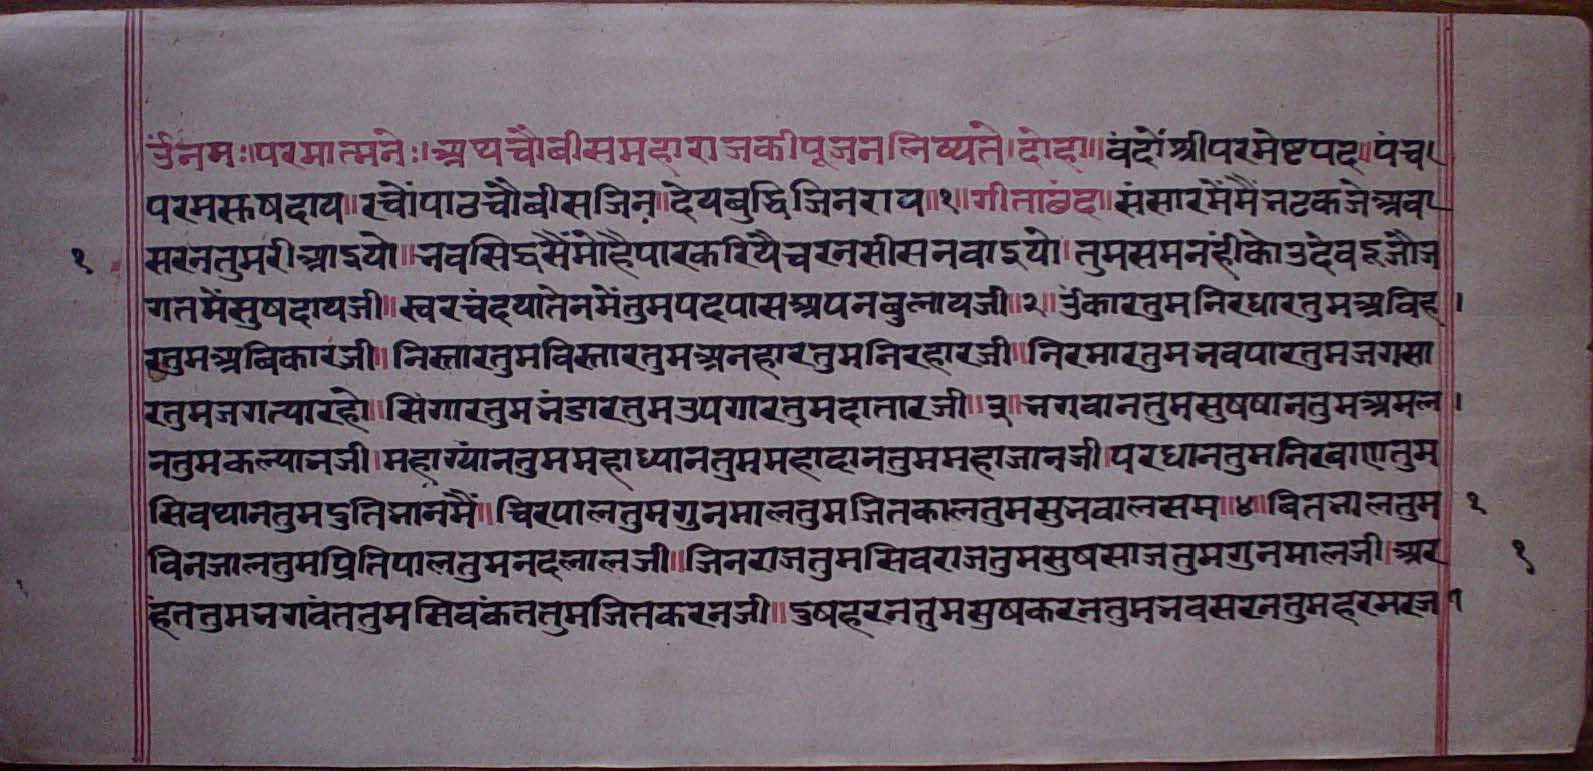 ॐनमः।परमात्मने।।अथचौंबीसमहाराजकीपूजनलिष्यते।दोहा॥वंदोंश्रीपरमेष्टपद॥पंच
परमसुषदाय॥रचोंपाठचौबीसजिन॥देयबुद्धिजिनराय॥१॥गीताछंद॥संसारमेंमैंभटकजेअव
१
सरनतुमरीआइयो॥भवसिद्धसैंमोहैपारकरियैचरनसीसनवाइयो।तुमसमनहींकोउदेवइजौज
गतमेंसुषदायजी॥स्वरचंदयातेनमेंतुमपदपासअपनबुलायजी॥२॥उंकारतुमनिरधारतुमअविह
रतुमअबिकारजी॥निस्तारतुमविस्तारतुमअनहारतुमनिरहारजी॥निरमारतुमभवपारतुमजगसा
रतुमजगत्यारहो॥सिंगारतुमभंडारतुमउपगारतुमदातारजी॥३॥भगवानतुमसुषषानतुमअमल
नतुमकल्यानजी।महाग्यांनतुममहाध्यानतुममहादानतुममहाजानजी।परधानतुमनिरवाणतुम
सिवथानतुमदुतिभानमैं॥चिरपालतुमगुनमालतुमजितकालतुमसुभवालसम॥४॥बितभालतुम
१
विनजालतुमप्रितिपालतुमनदलालजी॥जिनराजतुमसिवराजतुमसुषसाजतुमगुनमालजी।अर
१
हंततुमभगवंततुमसिवकंततुमजितकरनजी॥दुषहरनतुमसुषकरनतुमभवसरनतुमहरमरज